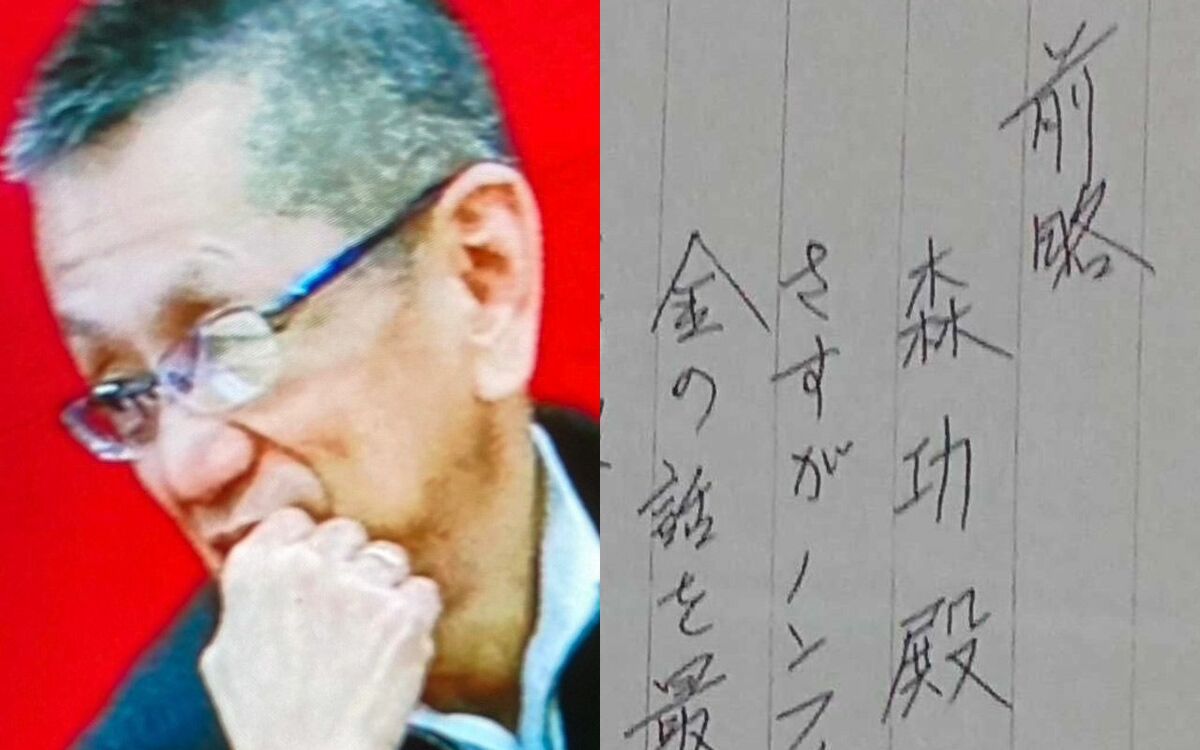 前略
森功殿
さすがノンフ
金の話を最